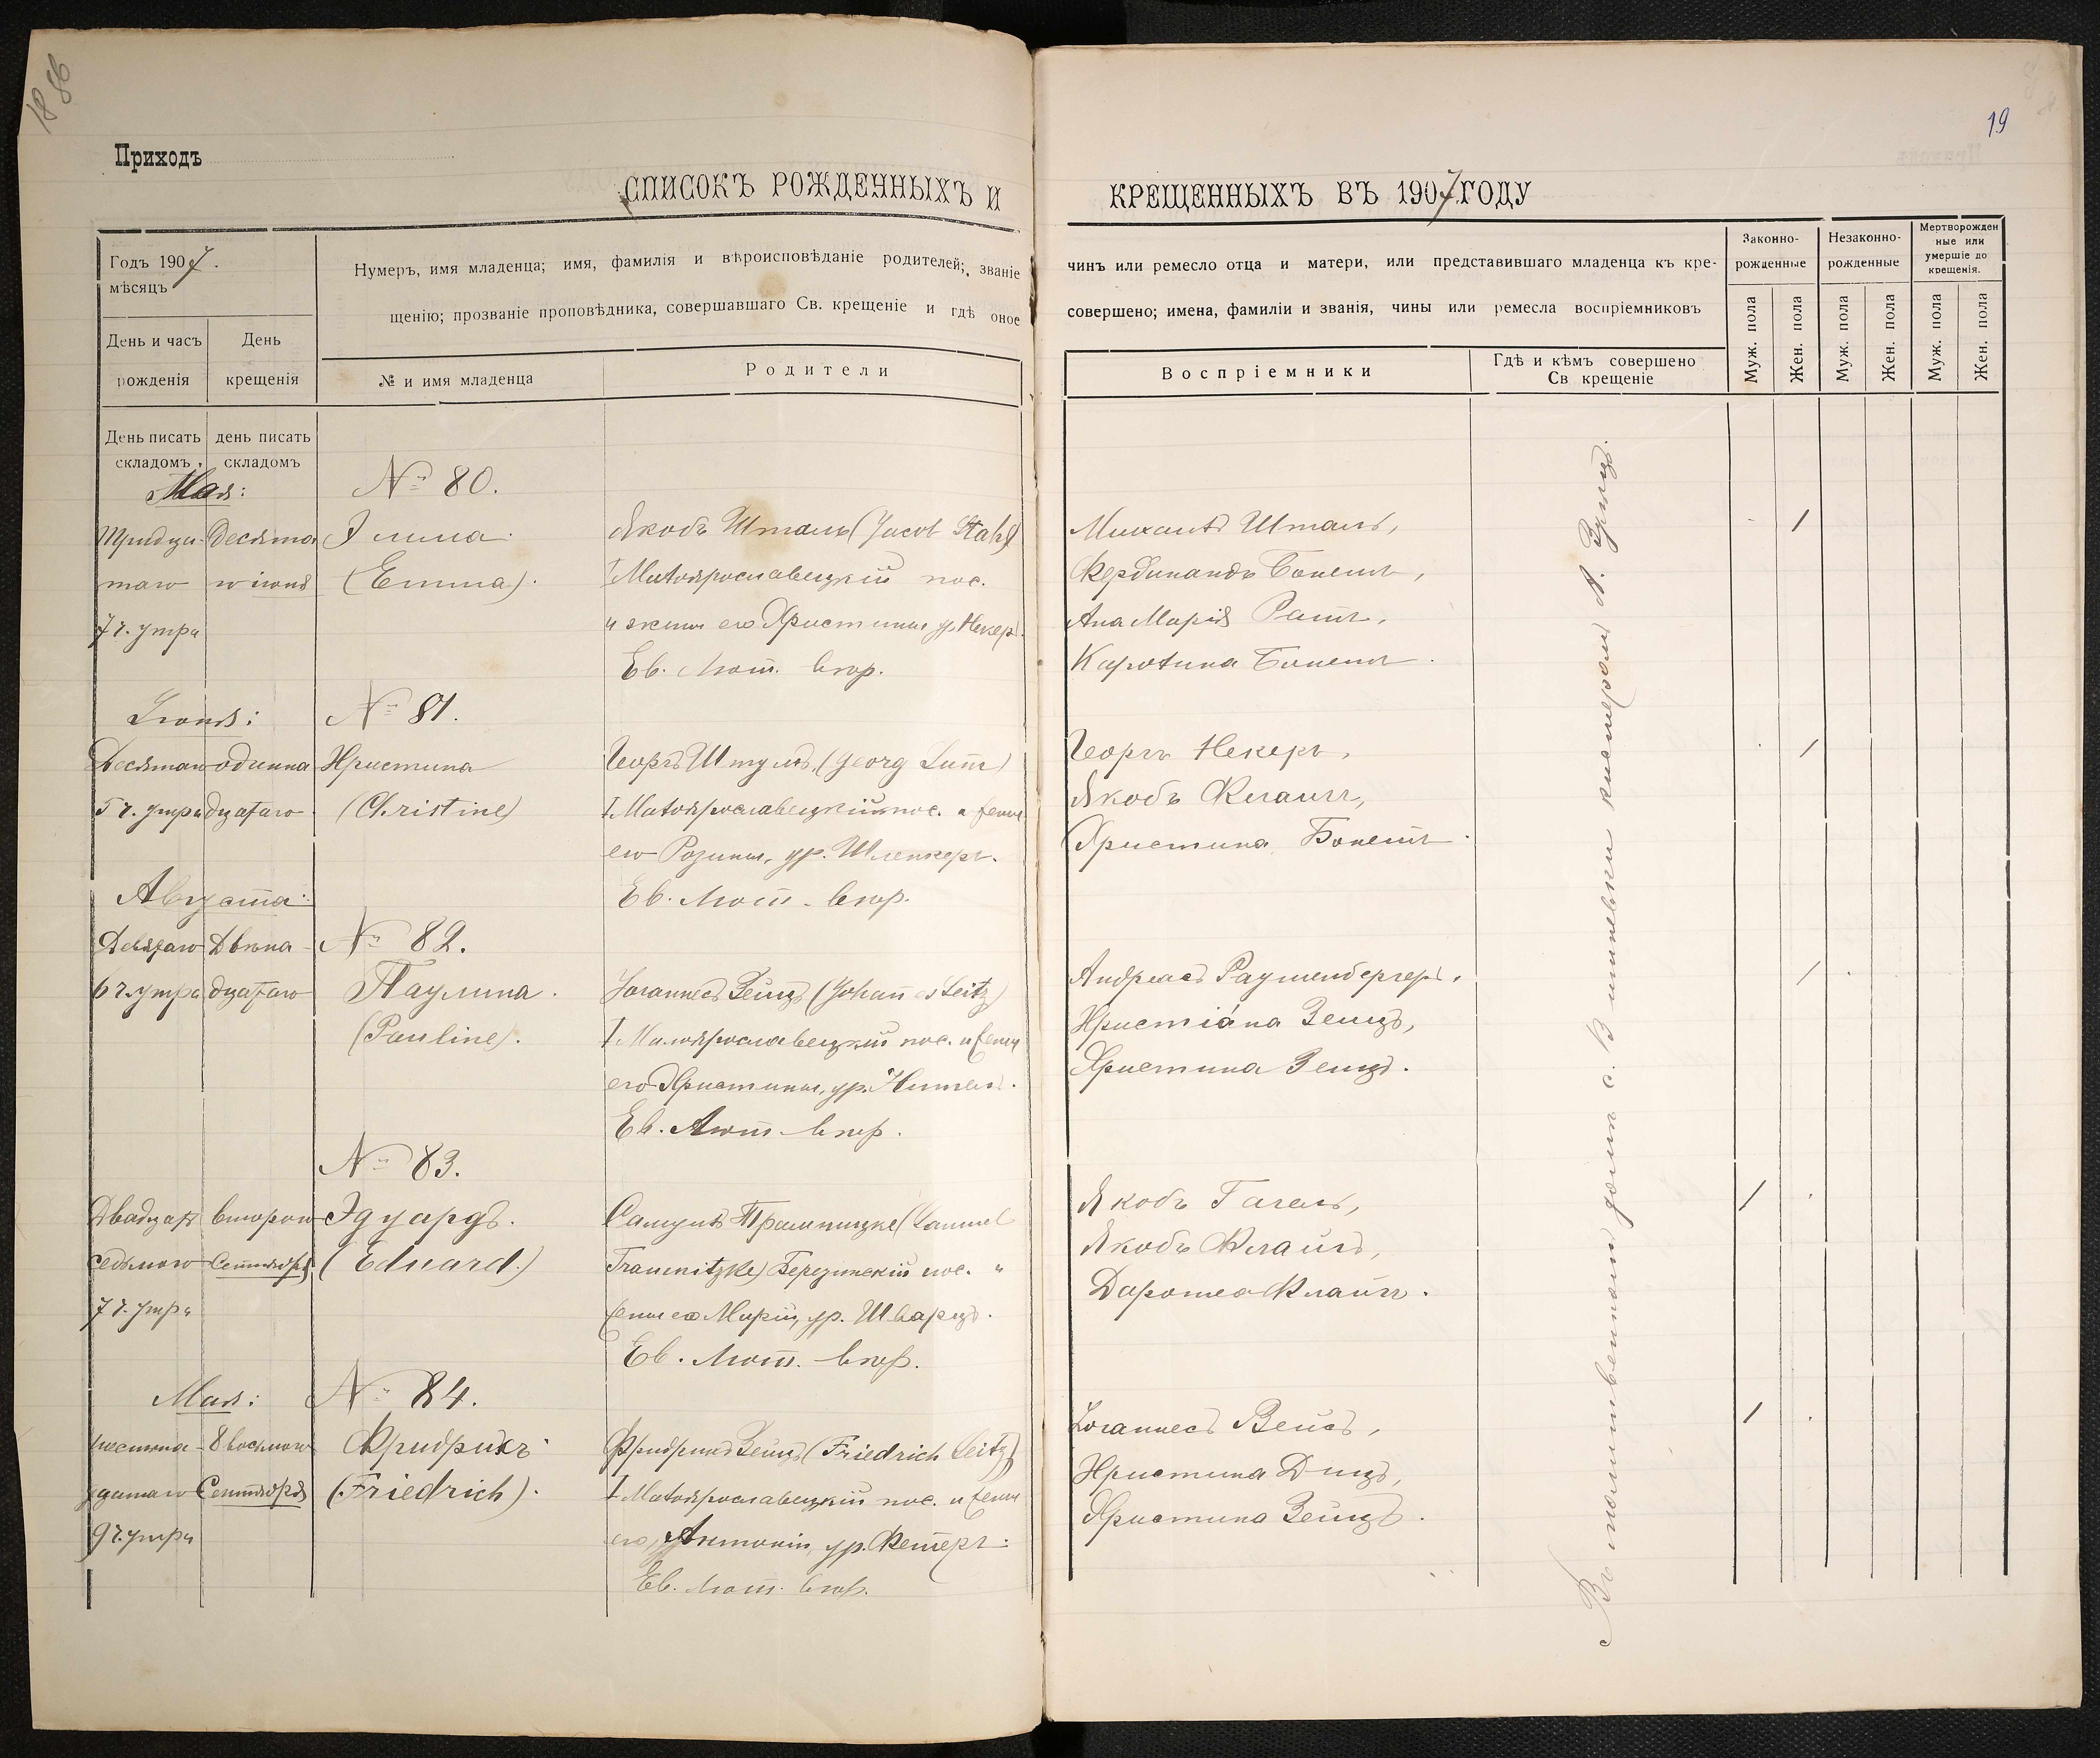 1886
19
Приходъ
СПИСОКЪ РОЖДЕННЫХЪ И КРЕЩЕННЫХЪ ВЪ 1907 ГОДУ
Годъ 1907.
мѣсяцъ
День и часъ рожденія
День крещенія
Нумеръ, имя младенца; имя, фамилія и вѣроисповѣданіе родителей; званіе
чинъ или ремесло отца и матери, или представившаго младенца къ кре-
щенію; прозваніе проповѣдника, совершавшаго Св. крещеніе и гдѣ оное
совершено; имена, фамиліи и званія, чины или ремесла воспріемниковъ
№ и имя младенца
Родители
Воспріемники
Гдѣ и кѣмъ совершено
Св крещеніе
Законно-
рожденные
Незаконно-
рожденные
Мертворожден
ные или
умершіе до
крещенія.
Муж. пола
Жен. пола
Муж. пола
Жен. пола
Муж. пола
Жен. пола
День писать
складомъ
день писать
складомъ
Мая:
№ 80.
Тридца-
таго
7 ч. утра
Десята
го іюня
Эмма
(Emma).
Якобъ Шталь (Jacob Stahl)
I Малоярославецкій пос.
и жены его Христины ур. Некеръ.
Ев. Лют. вѣр.
Михаилъ Шталь,
Фердинандъ Бонетъ,
Ана Марія Ратъ,
Каролина Бонетъ.
/
Іюня:
№ 81.
Десятаго
5 ч. утра
одинна
дцатаго
Христина
(Christine)
Георгъ Штумъ,
I Малоярославецкій пос. и жены
его Розины, ур. Шленкеръ.
Ев. Лют. вѣр.
Георгъ Некеръ,
Якобъ Клайнъ,
Христина Бонетъ.
/
Августа:
№ 82.
Девятаго
6 ч. утра
Двѣна
дцатаго
Паулина.
(Pauline).
Іоганнесъ Зейцъ (Johannes Seitz)
I Малоярославецкій пос. и жены
его Христины, ур.
Ев. Лют. вѣр.
Андреасъ Раушенбергеръ,
Христіана Зейцъ,
Христина Зейцъ.
/
№ 83.
Двадцать
седьмого
7 ч. утра
второго
Сентября
Эдуардъ.
(Eduard.)
Самуилъ Трамницке (Samuel
Tramnitzke) Березинскій пос. и
жены его Маріи, ур. Шварцъ.
Ев. Лют. вѣр.
Якобъ Гагель,
Якобъ Клайнъ,
Доротеа Клайнъ.
/
Мая:
№ 84.
шестна-
дцатаго
9 ч. утра
8 восьмого
Сентября
Фридрихъ
(Friedrich).
Фридрихъ Зейцъ (Friedrich Seitz)
I Малоярославецкій пос. и жены
его, Антоніи, ур. Фетеръ.
Ев. Лют. вѣр.
Іоганнесъ Вейсъ,
Христина Дицъ,
Христина Зейцъ.
/
Въ молитвенномъ домѣ с. кистеромъ А.